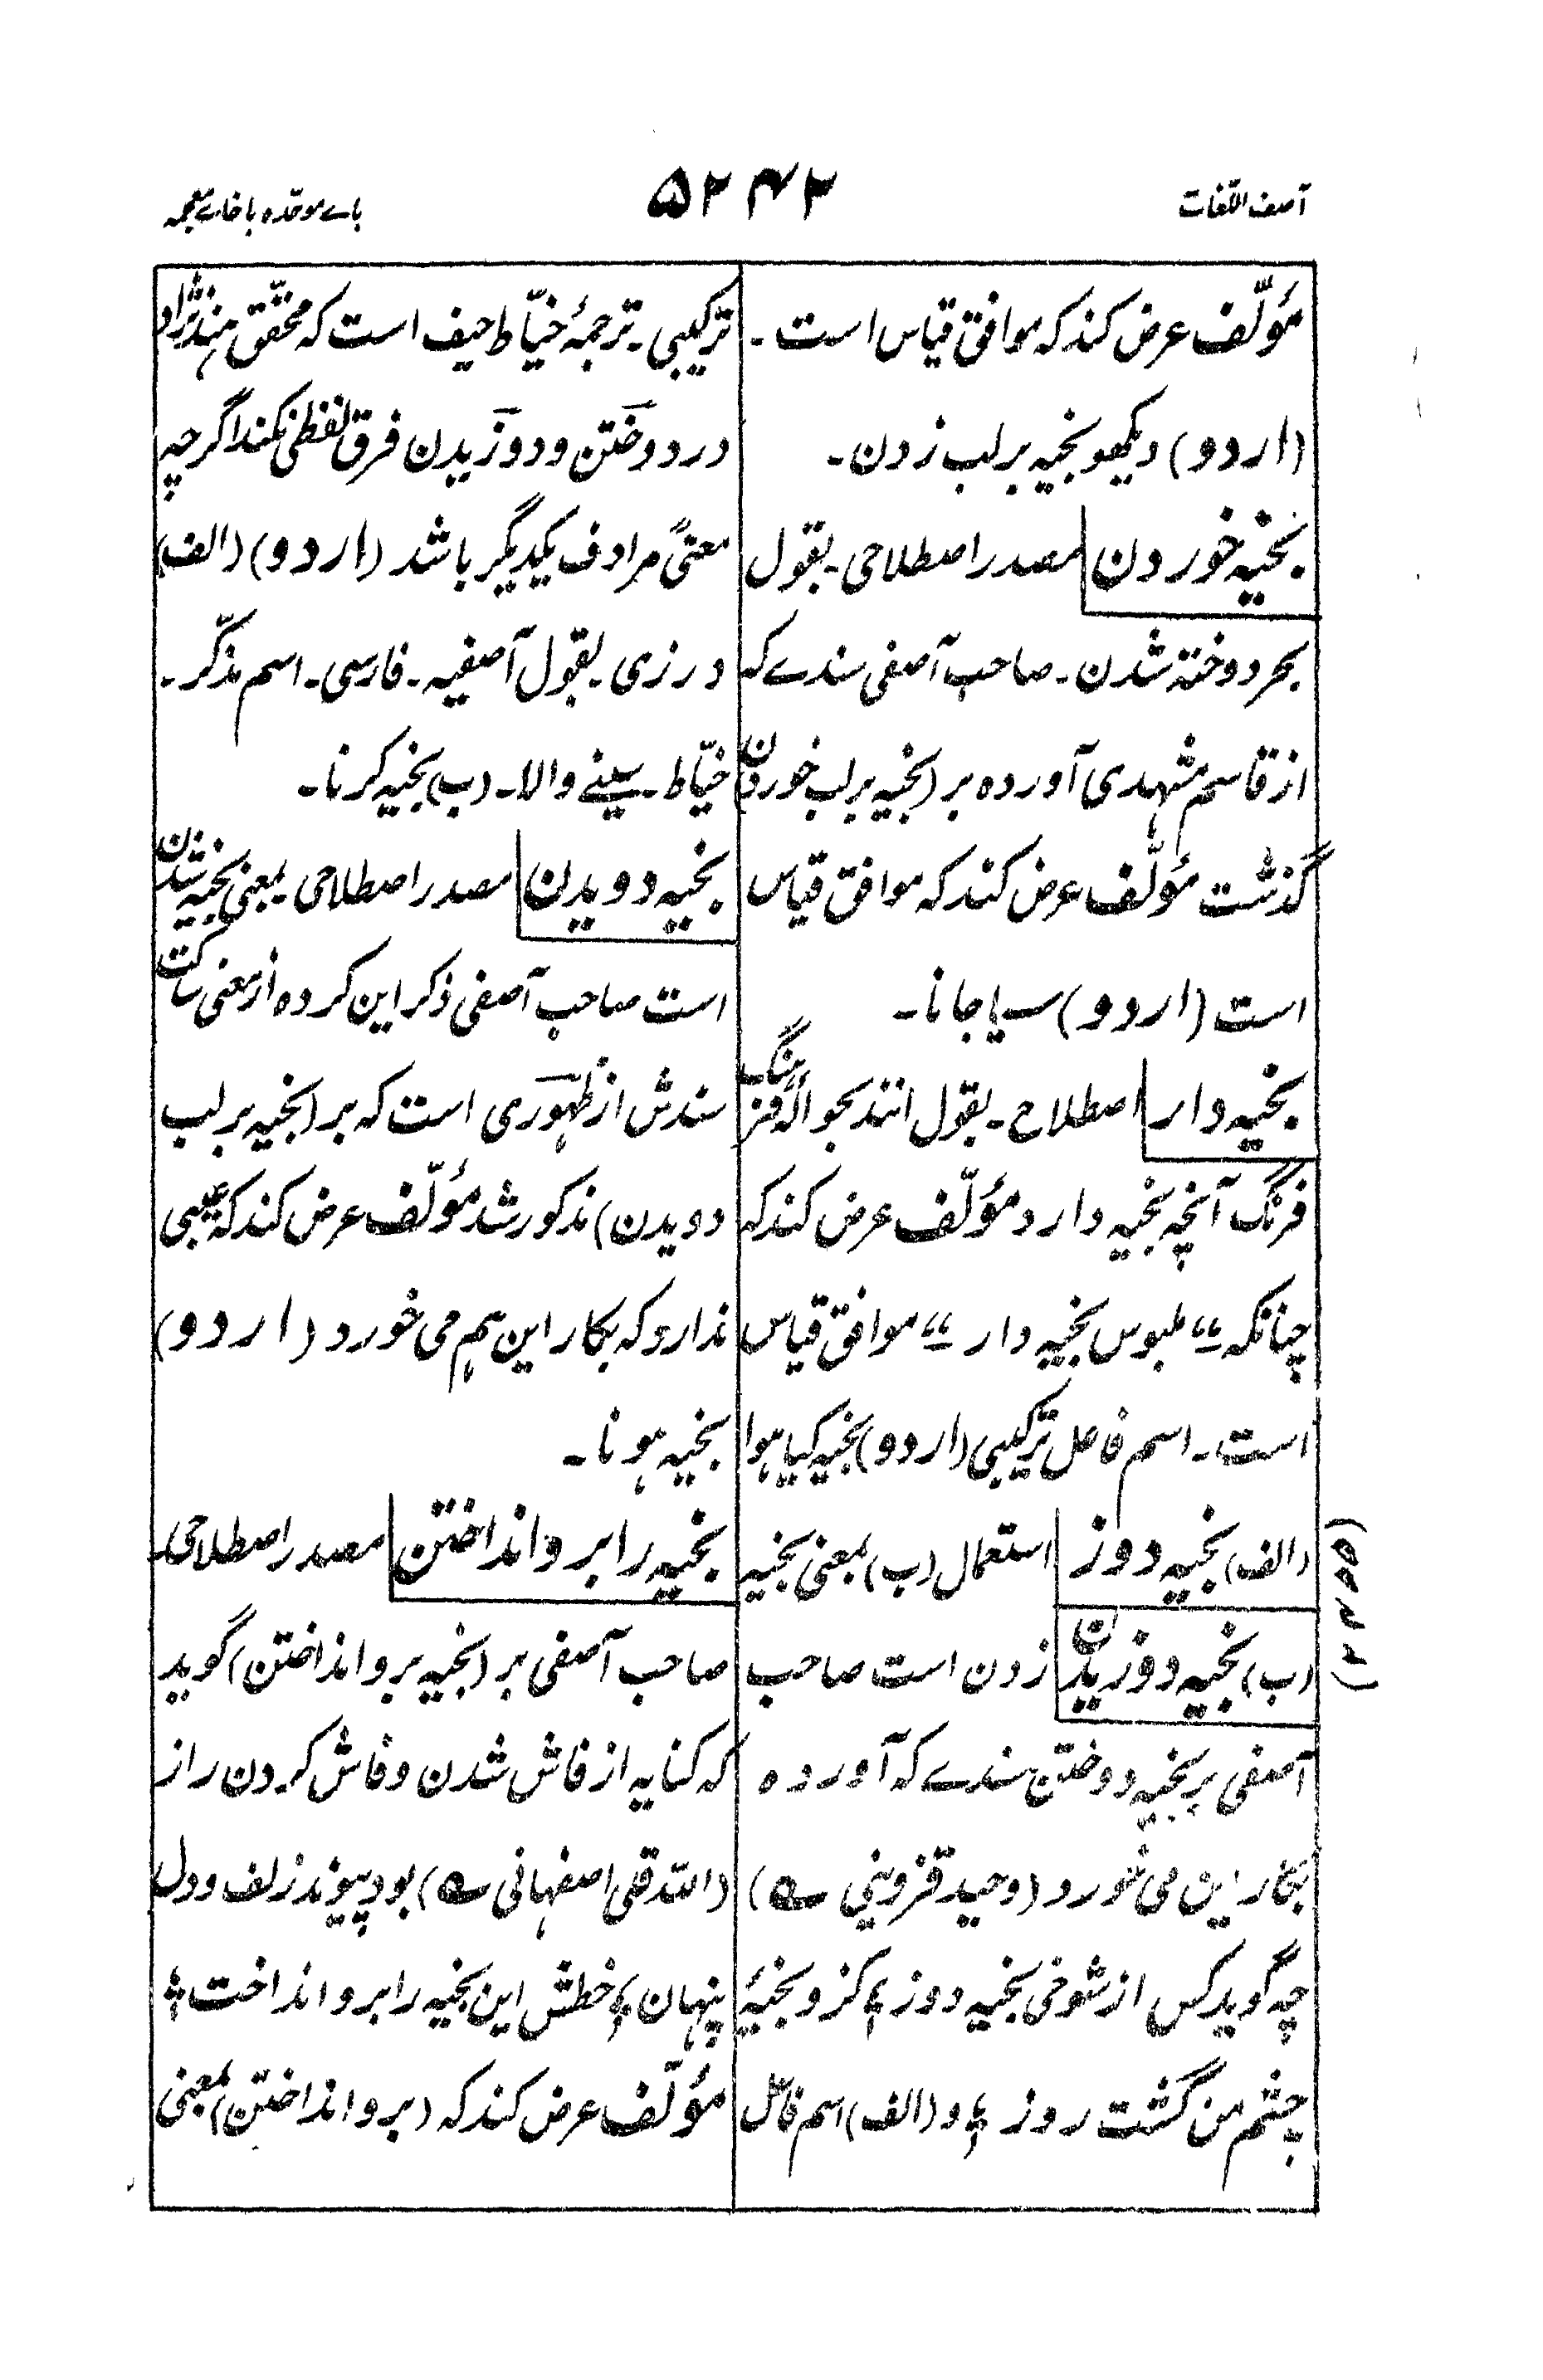 آصف اللغات
۵۲۴۲
باے موحّدہ با خاے معجمہ
مؤلّف عرض کند کہ موافق قیاس است ۔
(اردو) دیکھو بخیہ بر لب زدن ۔
بخیہ خوردن مصدر اصطلاحی ۔ بقول
بحر دوختہ شدن ۔ صاحب آصفی سندے کہ
از قاسم مشہدی آوردہ بر (بخیہ بر لب خوردن)
گذشت مؤلّف عرض کند کہ موافق قیاس
است (اردو) سیا جانا ۔
بخیہ دار اصطلاح ۔ بقول انند بحوالۂ فرہنگ
فرنگ آنچہ بخیہ دارد مؤلّف عرض کند کہ
چنانکہ “ملبوس بخیہ دار” موافق قیاس
است ۔ اسم فاعل ترکیبی (اردو) بخیہ کیا ہوا
(الف) بخیہ دوز استعمال (ب) بمعنی بخیہ
(ب) بخیہ دوزیدن زدن است صاحب
آصفی بر بخیہ دوختن سندے کہ آوردہ
بکار این می خورد (وحید قزوینی ؎)
چہ گوید کس از شوخی بخیہ دوز ؛ کزو بخیۂ
چشم من گشت روز ؛ و (الف) اسم فاعل
(۵۲۴۲)
ترکیبی ۔ ترجمۂ خیّاط حیف است کہ محقّق ہند نژاد
در دوختن و دوزیدن فرق لفظی نکند اگرچہ
معنیً مرادف یکدیگر باشد (اردو) (الف)
درزی ۔ بقول آصفیہ ۔ فارسی ۔ اسم مذکّر ۔
خیّاط ۔ سینے والا ۔ (ب) بخیہ کرنا ۔
بخیہ دویدن مصدر اصطلاحی ۔ بمعنی بخیہ شدن
است صاحب آصفی ذکر این کردہ از معنی ساکت
سندش از ظہوری است کہ بر (بخیہ بر لب
دویدن) مذکور شد مؤلّف عرض کند کہ عیبی
ندارد کہ بکار این ہم می خورد (اردو)
بخیہ ہونا ۔
بخیہ را برو انداختن مصدر اصطلاحی ۔
صاحب آصفی بر (بخیہ برو انداختن) گوید
کہ کنایہ از فاش شدن و فاش کردن راز
(اللہ قلی اصفہانی ؎) بود پیوند زلف و دل
پنہان ؛ خطش این بخیہ را برو انداخت ؛
مؤلّف عرض کند کہ (برو انداختن) بمعنی